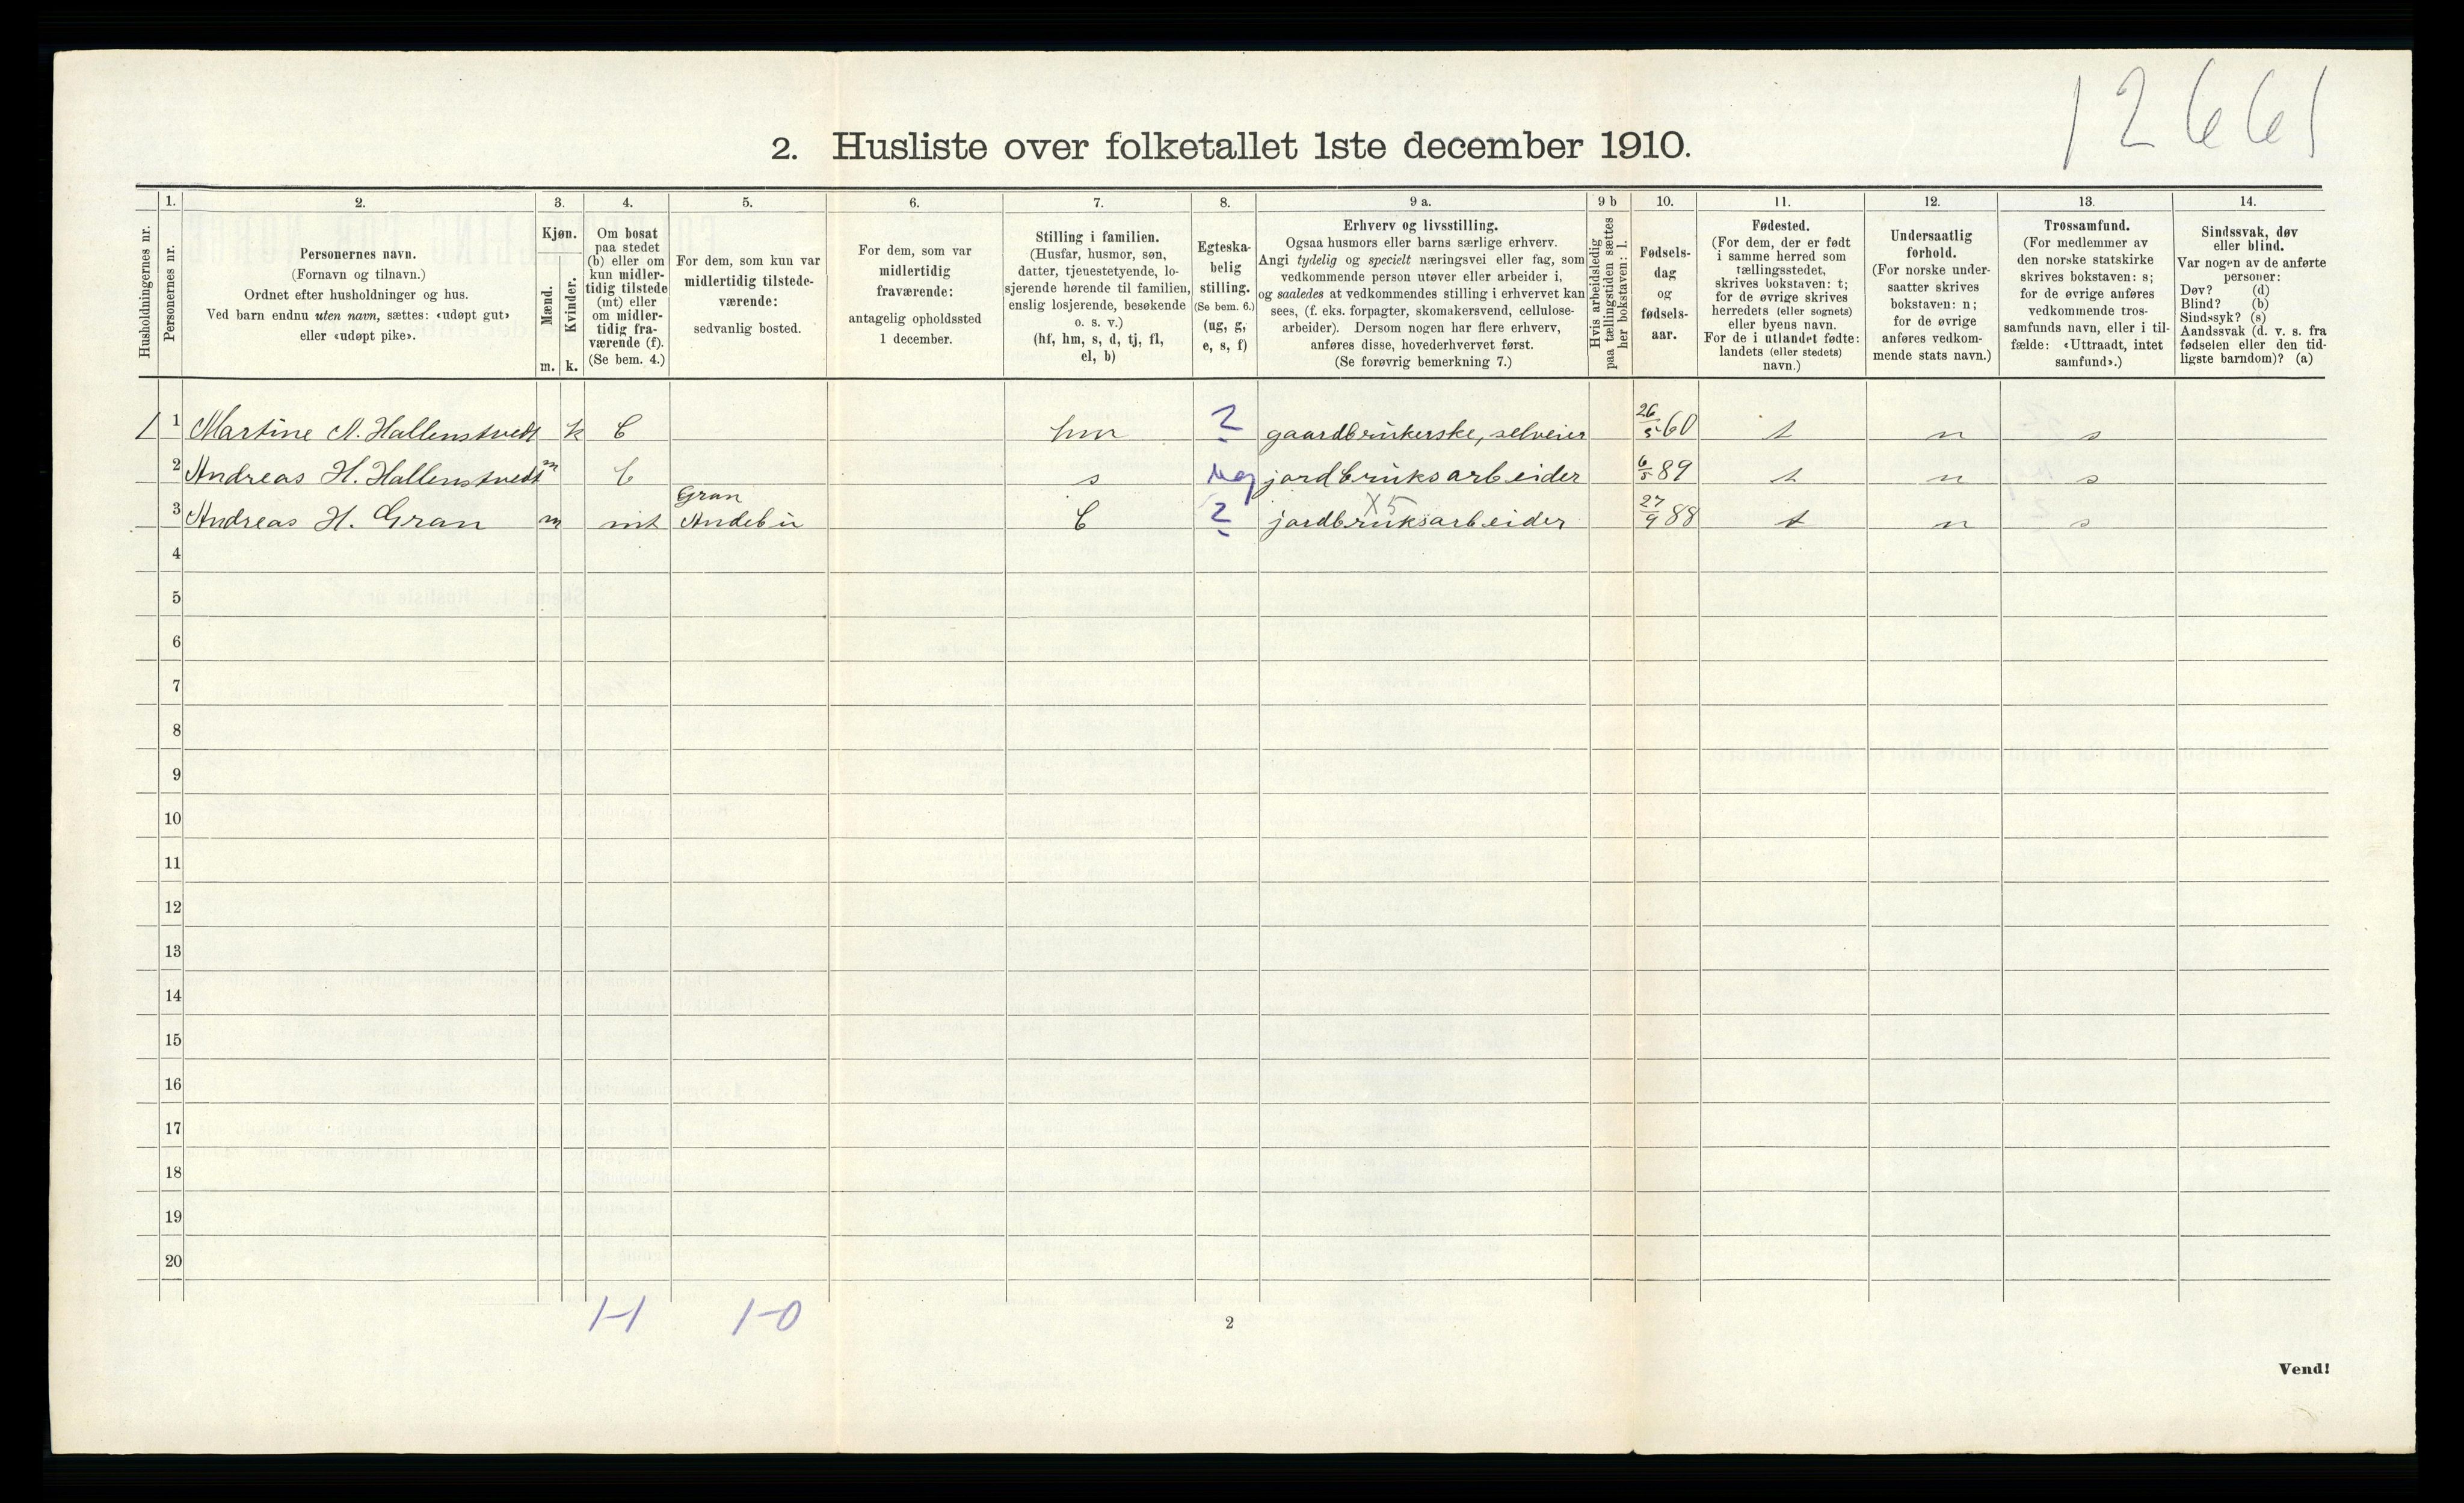 12661
2. Husliste over folketallet 1ste december 1910.
Husholdningernes nr.
1.
Personernes nr.
2.
Personernes navn.
(Fornavn og tilnavn.)
Ordnet efter husholdninger og hus.
Ved barn endnu uten navn, sættes: «udøpt gut»
eller «udøpt pike».
3.
Kjøn.
Mænd.
Kvinder.
m. k.
4.
Om bosat
paa stedet
(b) eller om
kun midler-
tidig tilstede
(mt) eller
om midler-
tidig fra-
værende (f).
(Se bem. 4.)
5.
For dem, som kun var
midlertidig tilstede-
værende:
sedvanlig bosted.
6.
For dem, som var
midlertidig
fraværende:
antagelig opholdssted
1 december.
7.
Stilling i familien.
(Husfar, husmor, søn,
datter, tjenestetyende, lo-
sjerende hørende til familien,
enslig losjerende, besøkende
o. s. v.)
(hf, hm, s, d, tj, fl,
el, b)
8.
Egteska-
belig
stilling.
(Se bem. 6.)
(ug, g,
e, s, f)
9 a.
Erhverv og livsstilling.
Ogsaa husmors eller barns særlige erhverv.
Angi tydelig og specielt næringsvei eller fag, som
vedkommende person utøver eller arbeider i,
og saaledes at vedkommendes stilling i erhvervet kan
sees, (f. eks. forpagter, skomakersvend, cellulose-
arbeider). Dersom nogen har flere erhverv,
anføres disse, hovederhvervet først.
(Se forøvrig bemerkning 7.)
9 b
Hvis arbeidsledig
paa tællingstiden sættes
her bokstaven: l.
10.
Fødsels-
dag
og
fødsels-
aar.
11.
Fødested.
(For dem, der er født
i samme herred som
tællingsstedet,
skrives bokstaven: t;
for de øvrige skrives
herredets (eller sognets)
eller byens navn.
For de i utlandet fødte:
landets (eller stedets)
navn.)
12.
Undersaatlig
forhold.
(For norske under-
saatter skrives
bokstaven: n;
for de øvrige
anføres vedkom-
mende stats navn.)
13.
Trossamfund.
(For medlemmer av
den norske statskirke
skrives bokstaven: s;
for de øvrige anføres
vedkommende tros-
samfunds navn, eller i til-
fælde: «Uttraadt, intet
samfund».)
14.
Sindssvak, døv
eller blind.
Var nogen av de anførte
personer:
Døv? (d)
Blind? (b)
Sindssyk? (s)
Aandssvak (d. v. s. fra
fødselen eller den tid-
ligste barndom)? (a)
1 1 Martine N. Hallenstvedt k b hm gaardbrukerske, selveier 26/5 60 t n s
2 Andreas H. Hallenstvedt m b s ug jordbruksarbeider 6/5 89 t n s
Gran X5
3 Andreas H. Gran m mt Andebu b jordbruksarbeider 27/9 88 t n s
4
5
6
7
8
9
10
11
12
13
14
15
16
17
18
19
20
1-1 1-0
2
Vend!